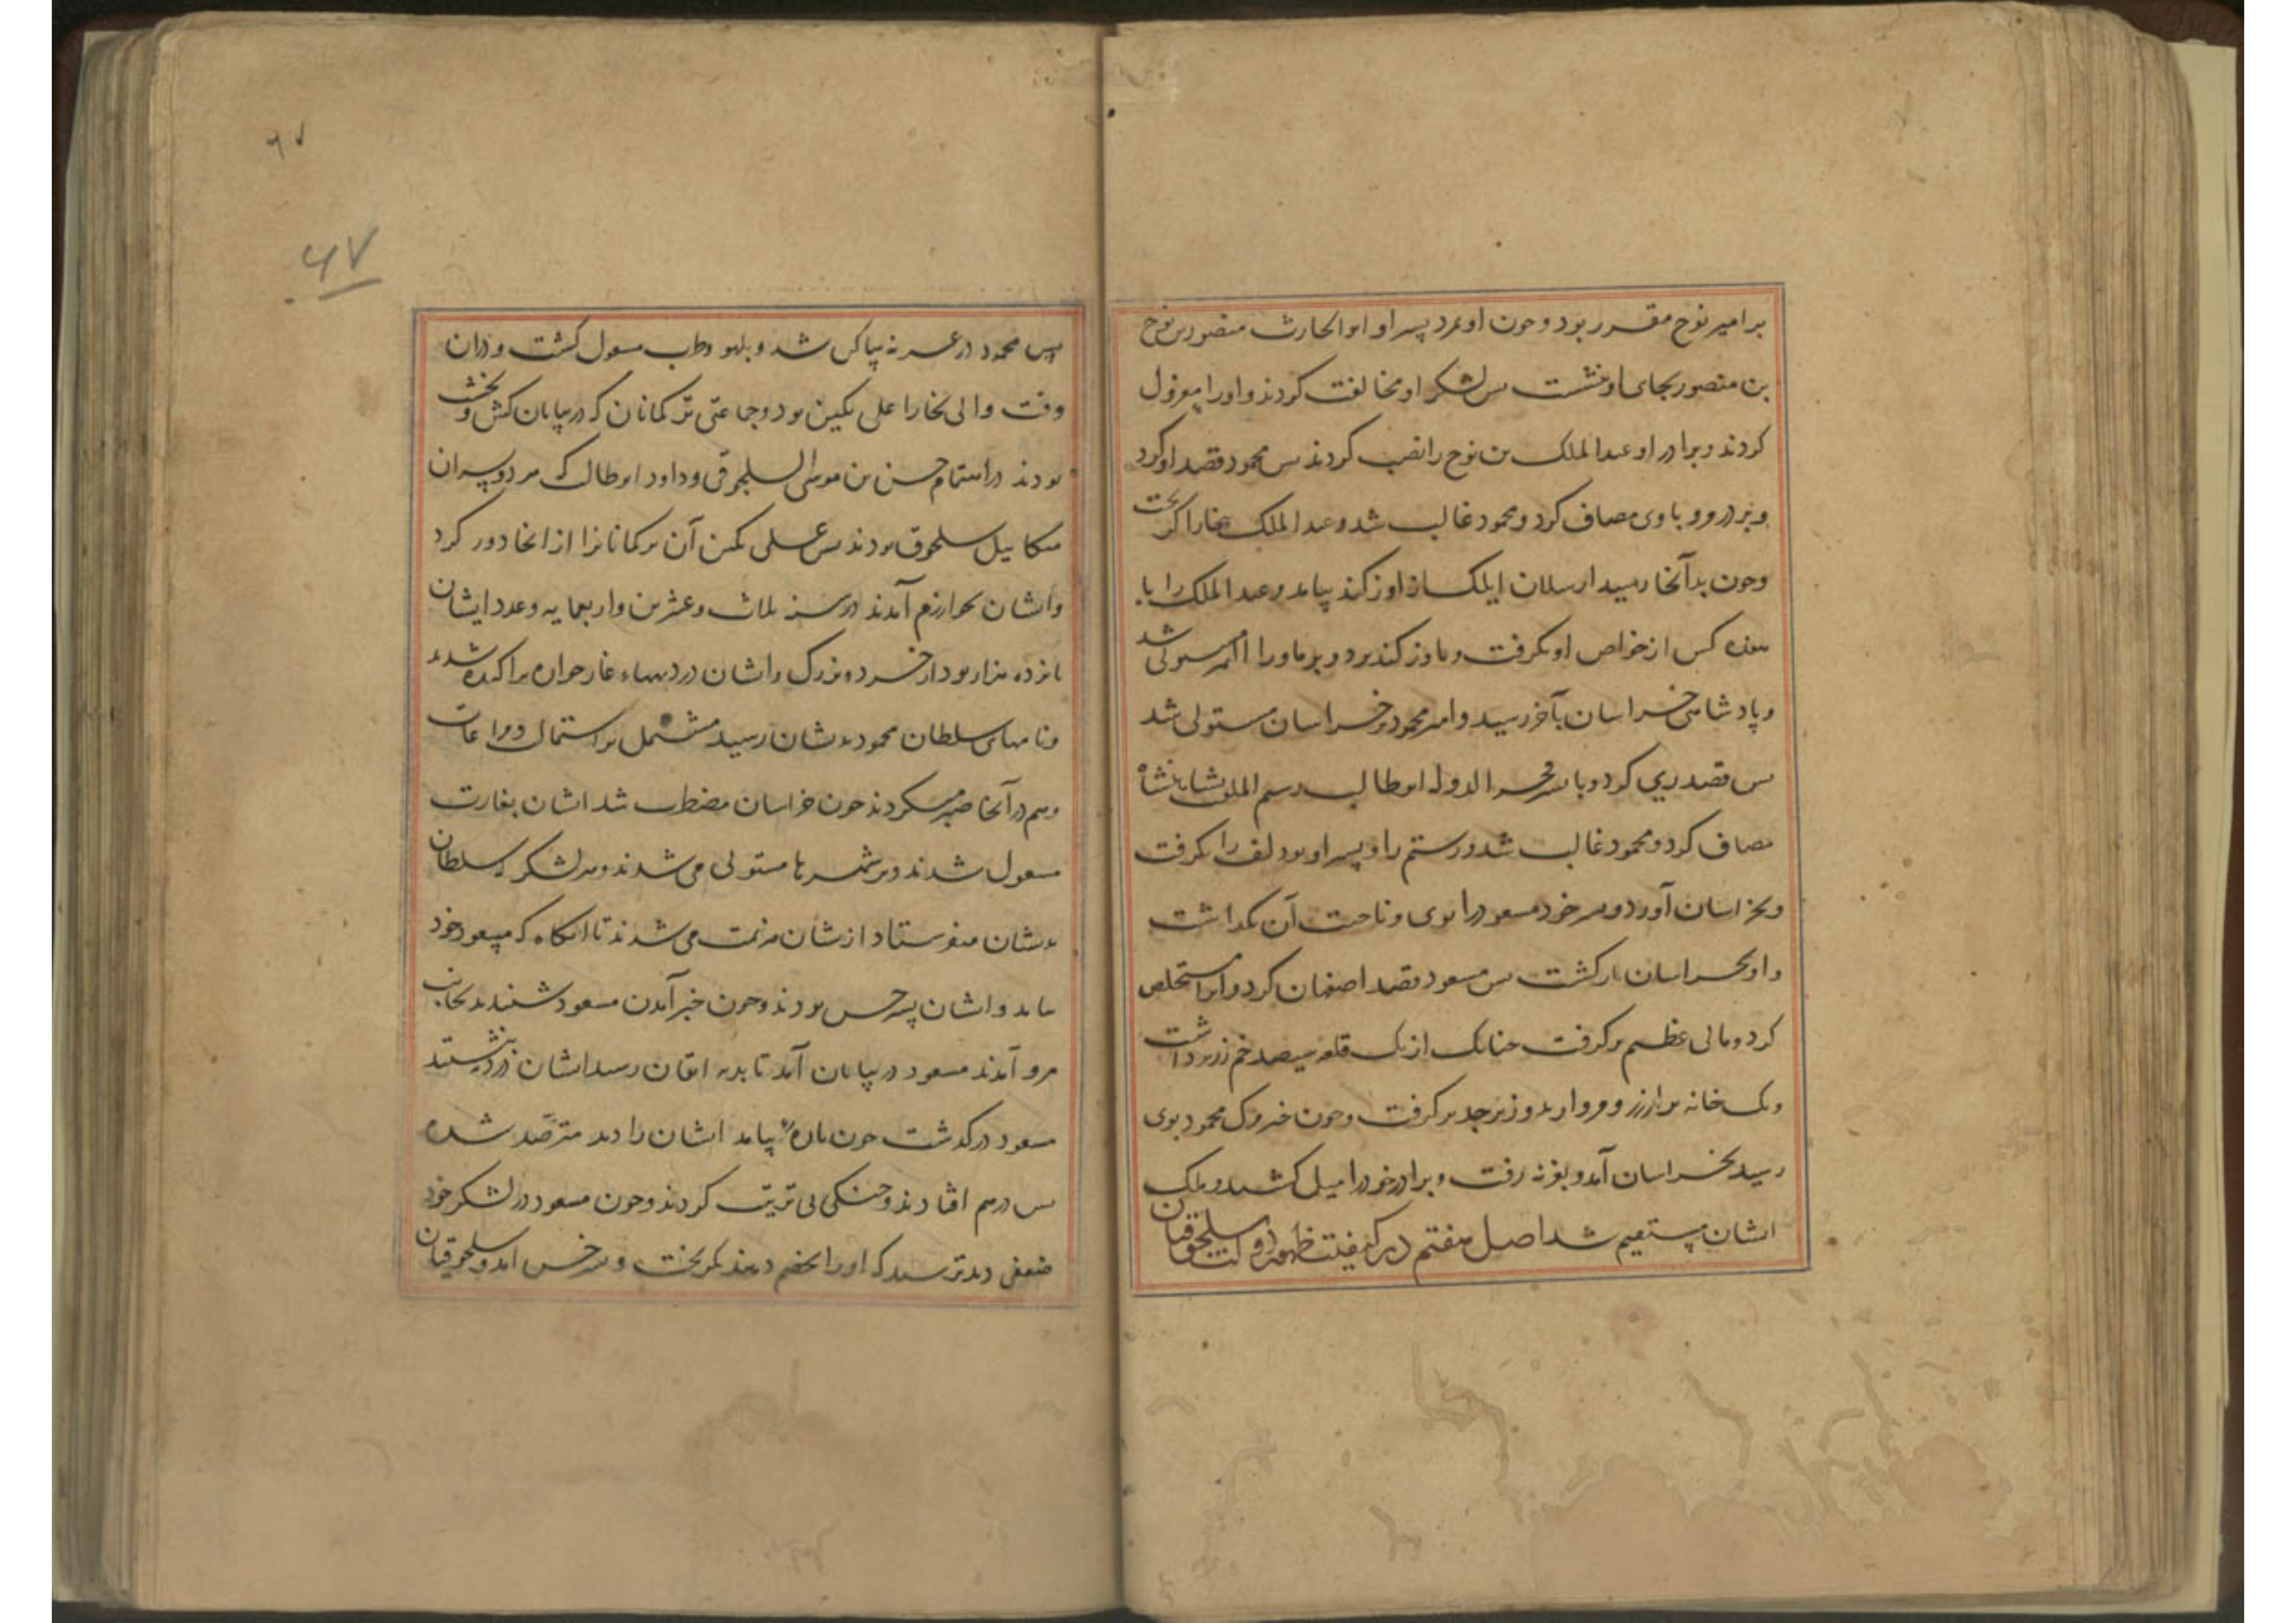 بر امیر نوح مقرر بود و حون او بمرد پسر او ابو الحارث منصور بن نوح
بن منصور بجای او بنشست بس لشکر او مخالفت کردند و او را معزول
کردند و برادر او عبد الملک بن نوح را نصب کردند بس محمود قصد او کرد
و بر در مرو با وی مصاف کرد و محمود غالب شد و عبد الملک ببخارا کریخت
وحون بدآنجا رسید ارسلان ایلک از اوزکند بیامد و عبد الملک را با
کس از خواص او بکرفت و باوزکند برد و بر ماورا النهر مستولی شد
و پادشاهی خراسان بآخر رسید و امر محمود بر خراسان مستولی شد
بس قصد ری کرد و با پسر فخر الدوله ابو طالب رستم الملقب بشاهنشاه
مصاف کرد و محمود غالب شد و رستم را و پسر او بو دلف را بکرفت
و بخراسان آورد و پسر خود مسعود را بری و ناحیت آن بکداشت
و او بخراسان باز کشت بس مسعود قصد اصفهان کرد و آنرا مستخلص
کرد و مالی عظیم برکرفت جنانک از یک قلعه سیصد خم زر برداشت
و یک خانه بر از زر و مروارید و زبرجد برکرفت و حون خبر مرک محمود بوی
رسید بخراسان آمد و بغزنه رفت و برادر خود را میل کشید و ملک
ایشان مستقیم شد اصل هفتم در کیفیت ظهور دولت سلجوقیان
۶۷
۶۷
پس محمود در غزنه شد و بلهو و طرب مشغول کشت و در آن
وقت والی بخارا علی تکین بود و جماعتی ترکمانان که در بیابان کش و نخشب
بودند در اهتمام حسن بن موسی السلجوقی و داود ابو طالب که هر دو پسران
میکاییل سلجوق بودند بس علی تکین آن ترکمانانرا از آنجا دور کرد
و ایشان بخوارزم آمدند در سنه ثلاث و عشرین و اربعمایه و عدد ایشان
بانزده هزار بود از خرد و بزرک و ایشان در دیهاء براکنده شدند
و نامهای سلطان محمود بدیشان رسید مشتمل بر استمالت و مراعات
و هم در آنجا صبر میکردند حون خراسان مضطرب شد ایشان بغارت
مشغول شدند و بر شهرها مستولی می شدند و هر لشکر که سلطان
بدیشان میفرستاد از یشان هزیمت می شدند تا آنکاه که مسعود خود
بیامد و ایشان بسرخس بودند و حون خبر آمدن مسعود شنیدند بجانب
مرو آمدند مسعود در بیابان آمد تا بدیه رسید ایشان
مسعود درکذشت حون باره بیامد ایشان را دید مترصد شده
بس در هم افتادند و جنکی بی ترتیب کردند و حون مسعود در لشکر خود
ضعفی دید ترسید که او را بخصم دهند بکریخت و بسرخس آمد و سلجوقیان